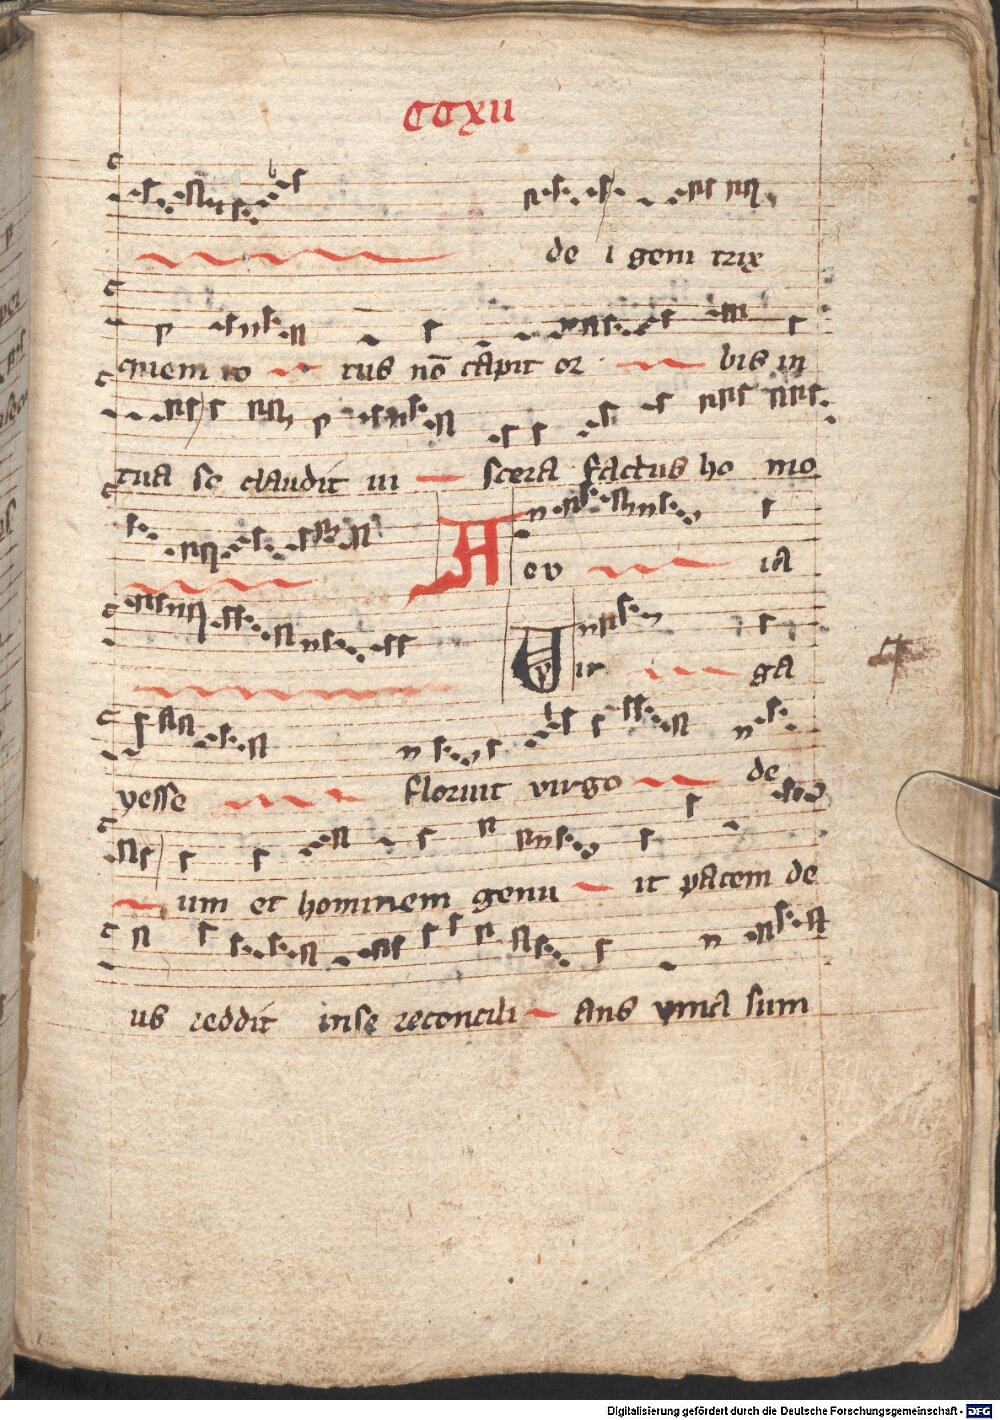 CCXII
de i geni trix
quem to tus nō capit or bis in
tua se claudit ui scera factus ho mo
A e v ia
Vir ga
yesse floruit virgo de
um et hominem genu it pacem de
us reddit in se reconcili ans yma sum
Digitalisierung gefördert durch die Deutsche Forschungsgemeinschaft - DFG